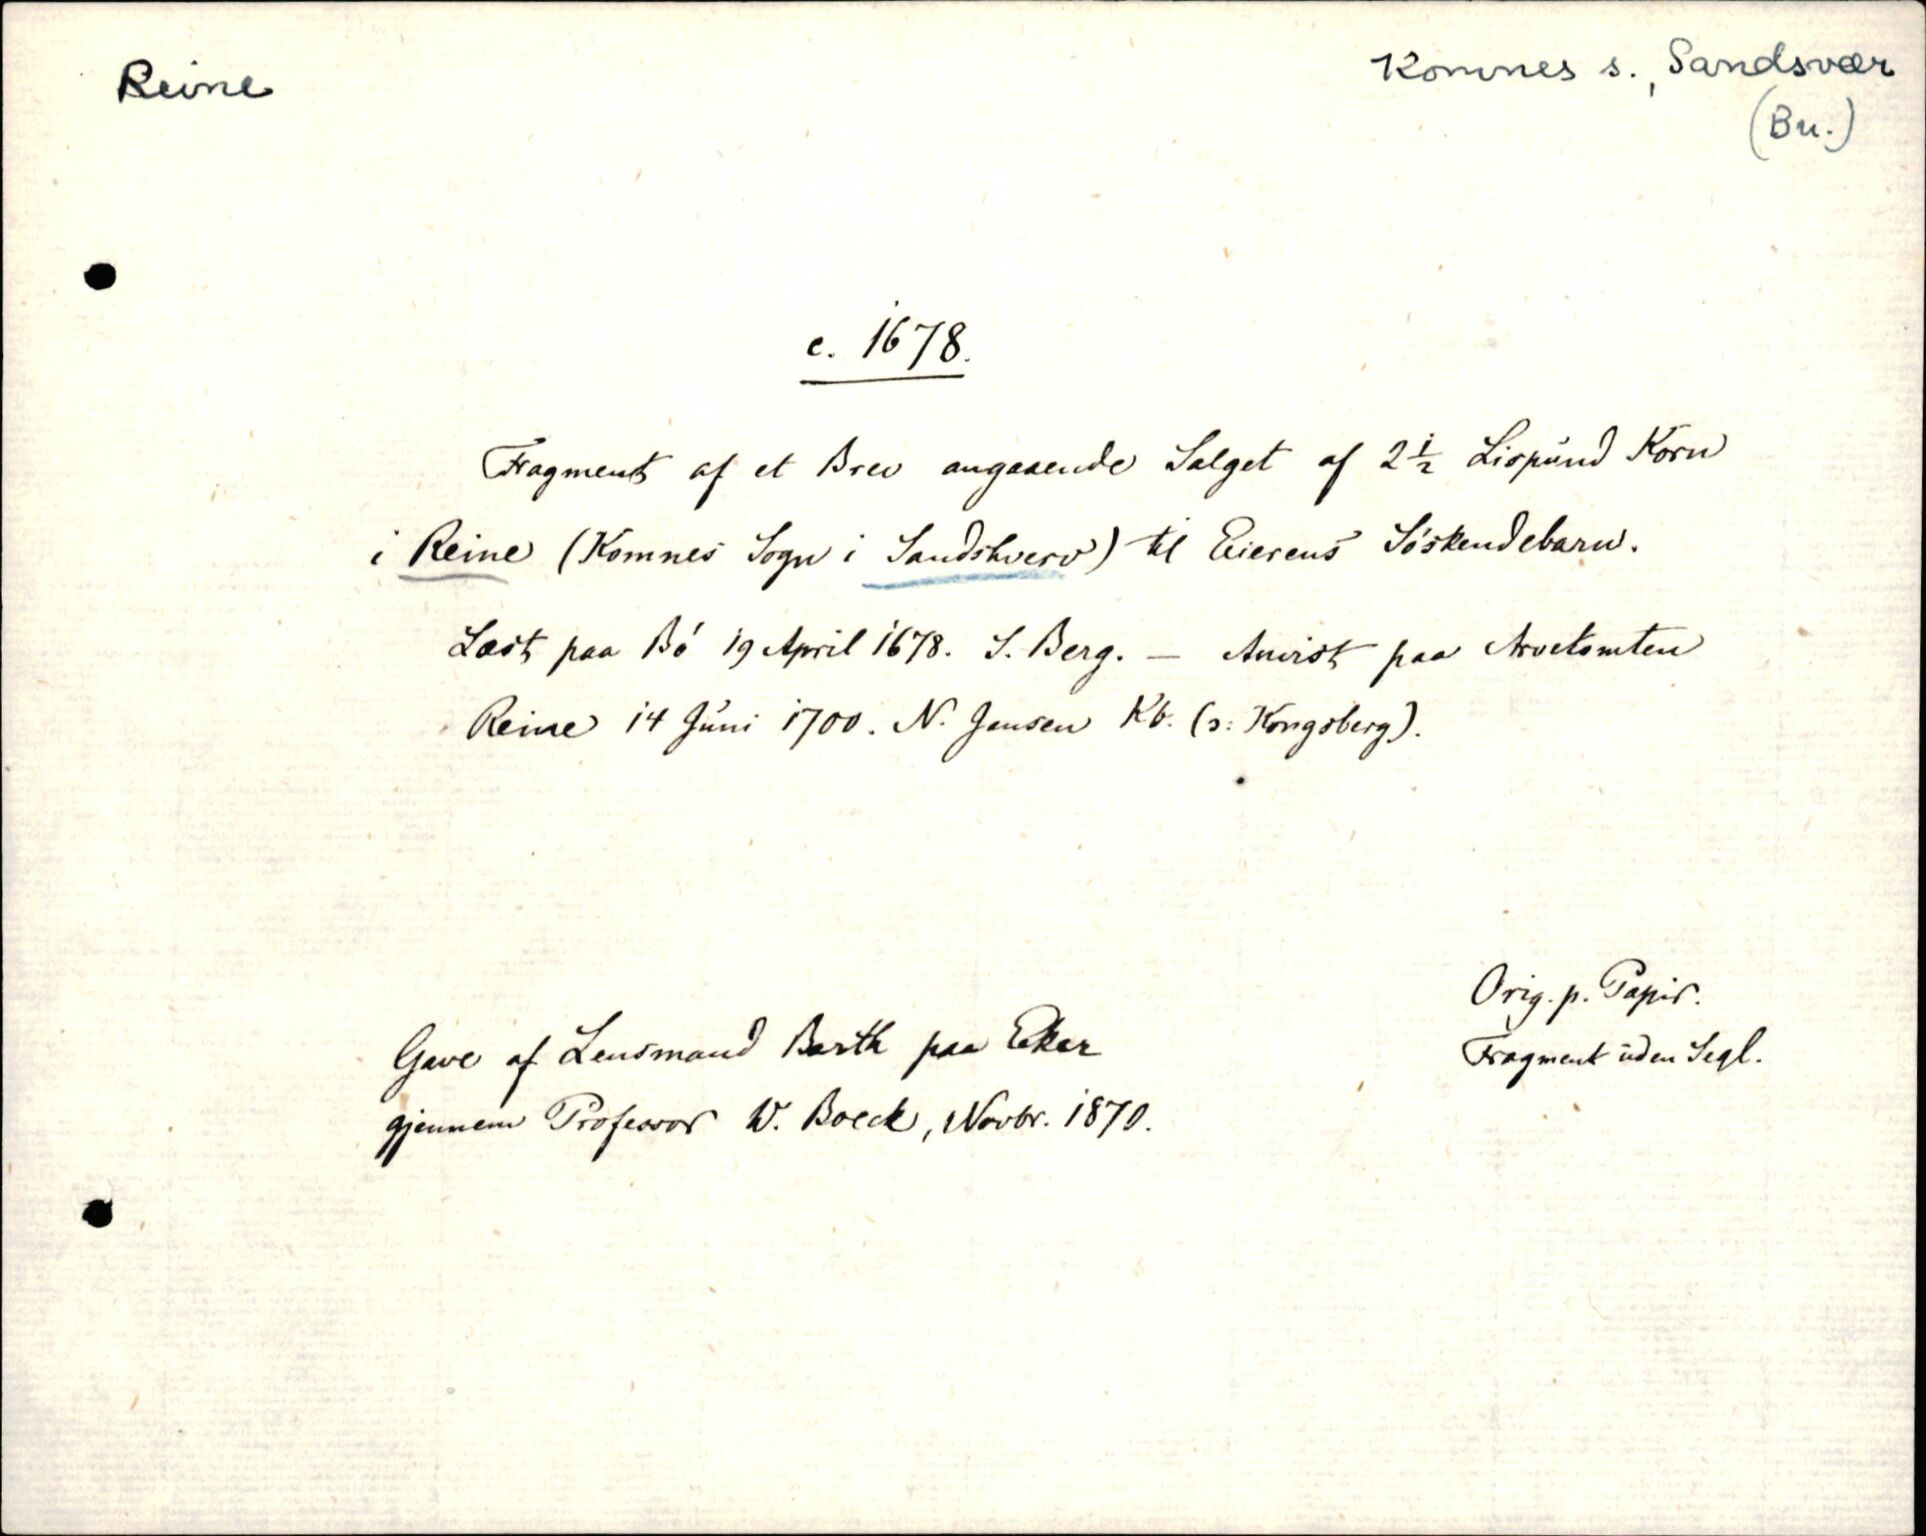 Reine
Komnes s., Sandsvær
(Bu.)
c. 1678.
Fragment af et Brev angaaende Salget af 2½ Lispund Korn
i Reine (Komnes Sogn i Sandshverv) til Eierens Söskendebarn.
Læst paa Bö 19 April 1678. S. Berg. — Anvist paa Arvetomten
Reine 14 Juni 1700. N. Jensen Kb. (ɔ: Kongsberg).
Orig. p. Papir.
Fragment uden Segl.
Gave af Lensmand Barth paa Eker
gjennem Professor W. Boeck, Novbr. 1870.